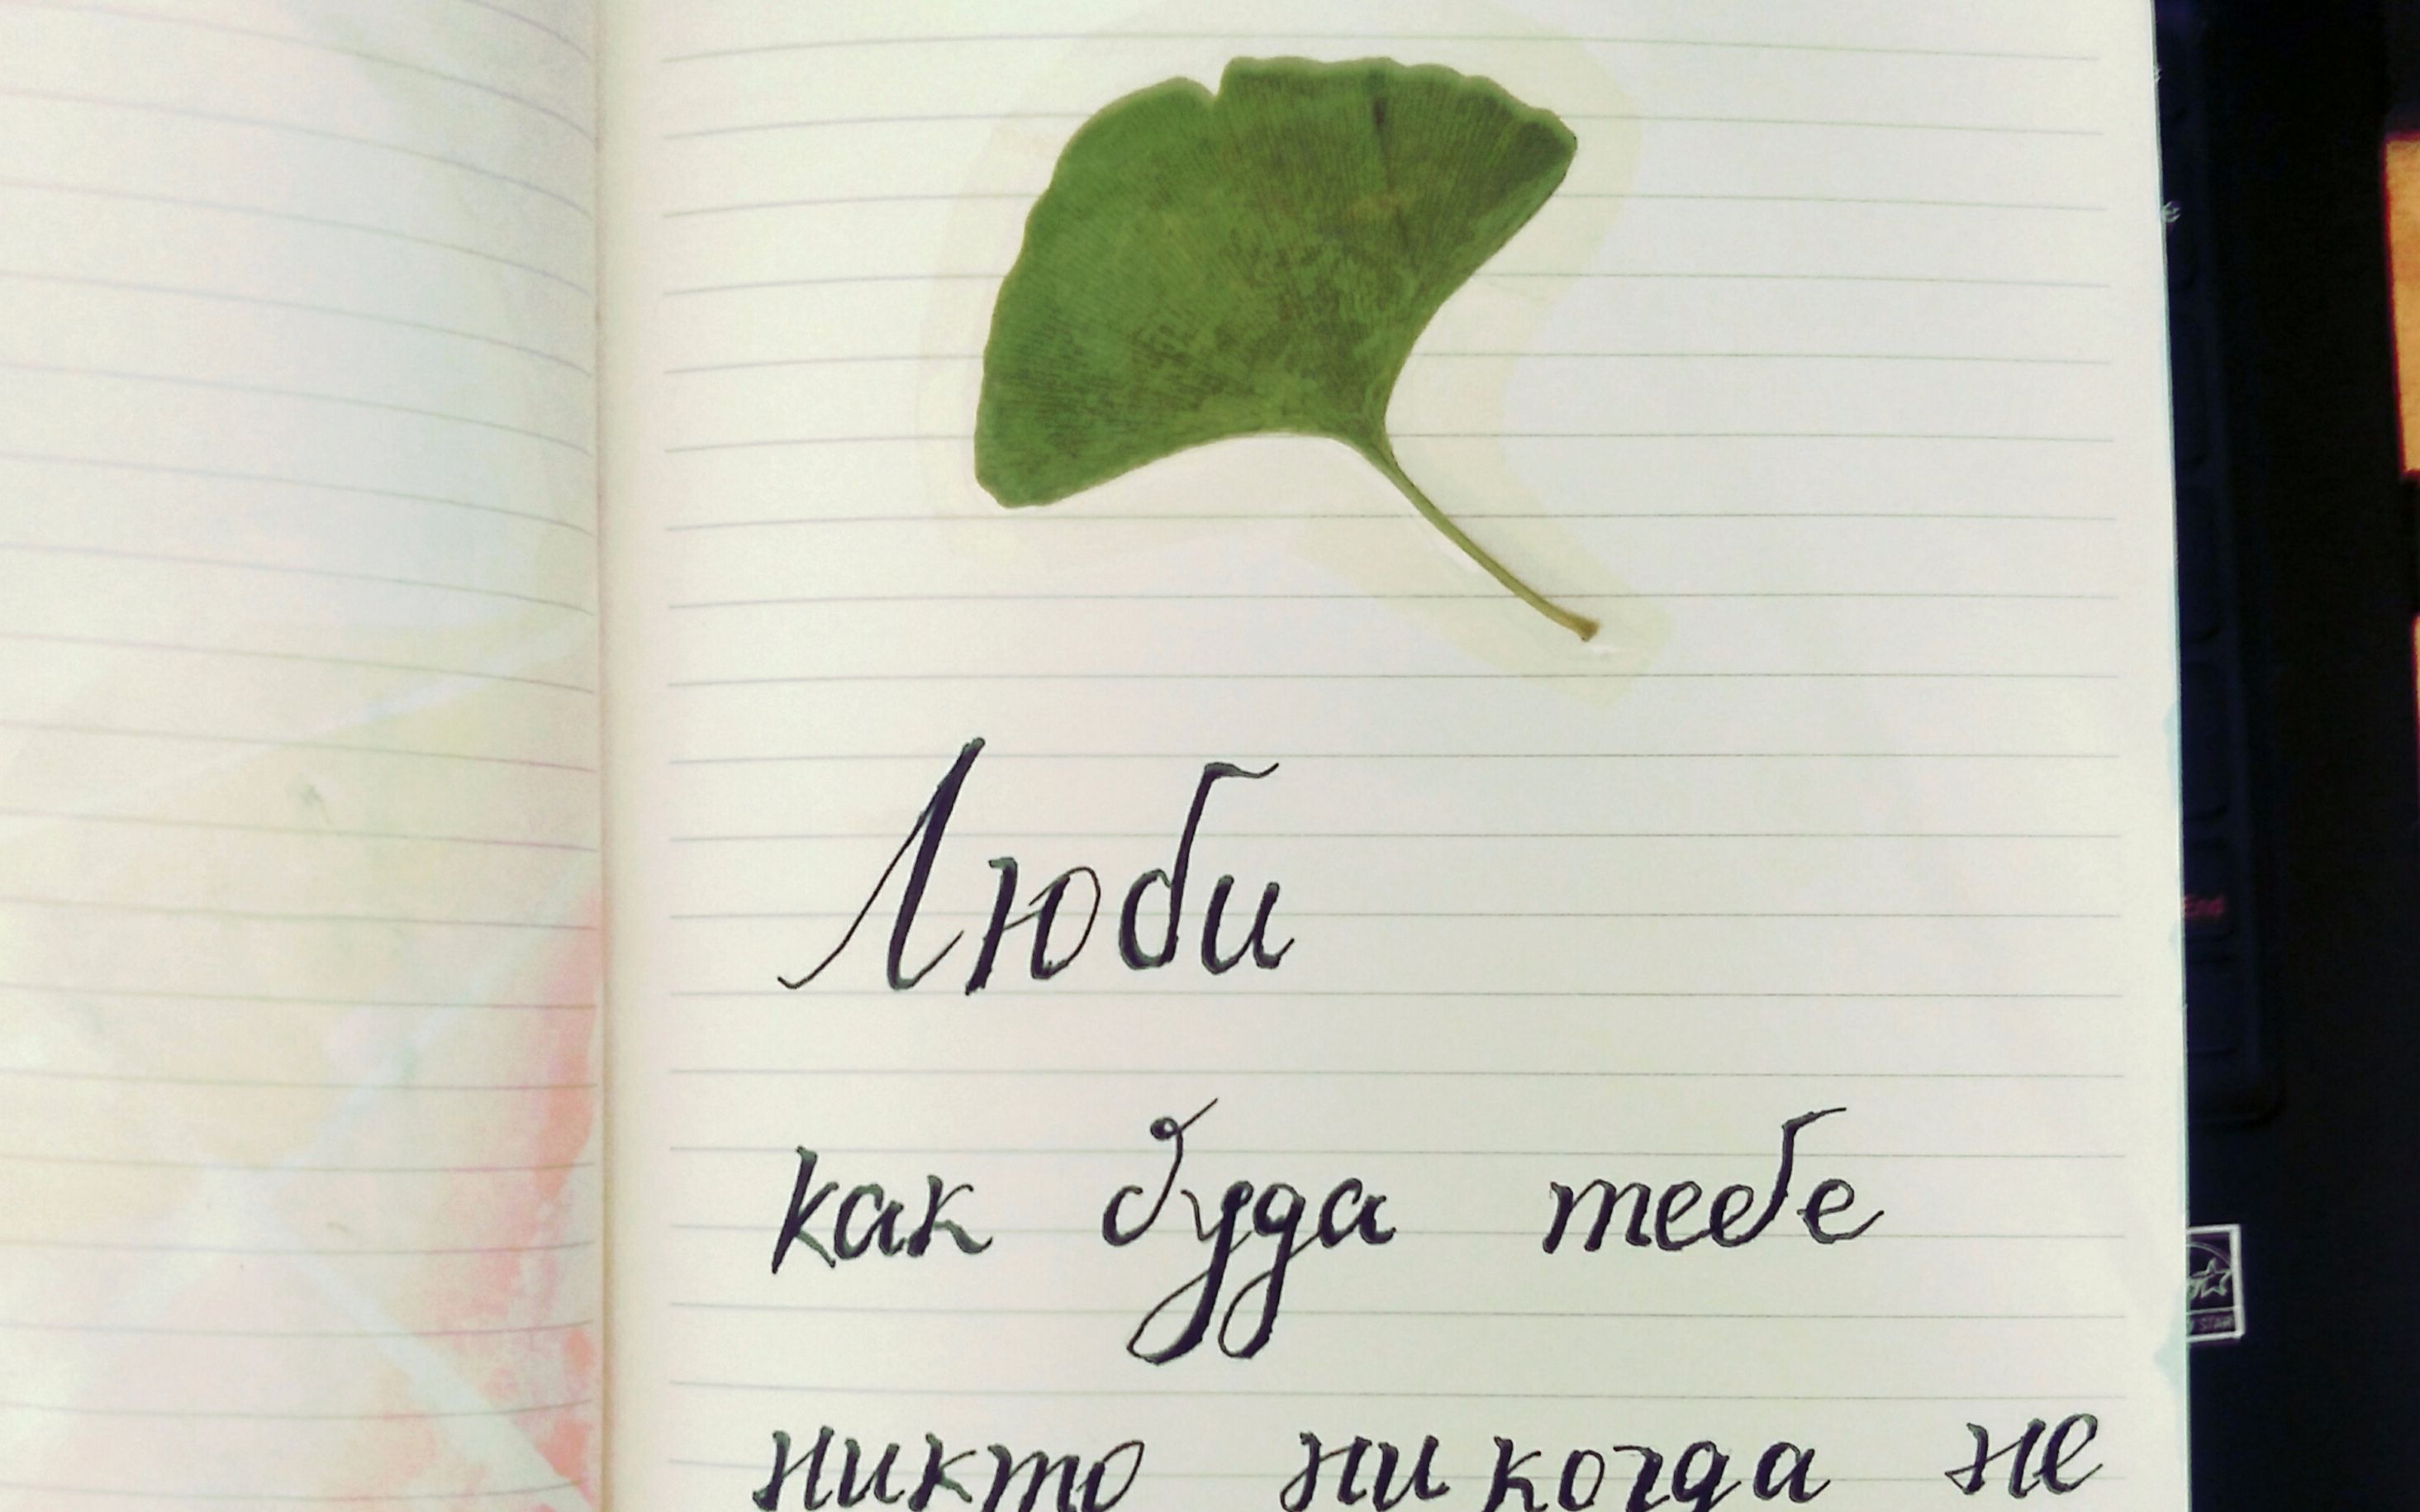 Люби
как буда тебе
никто никогда не
End